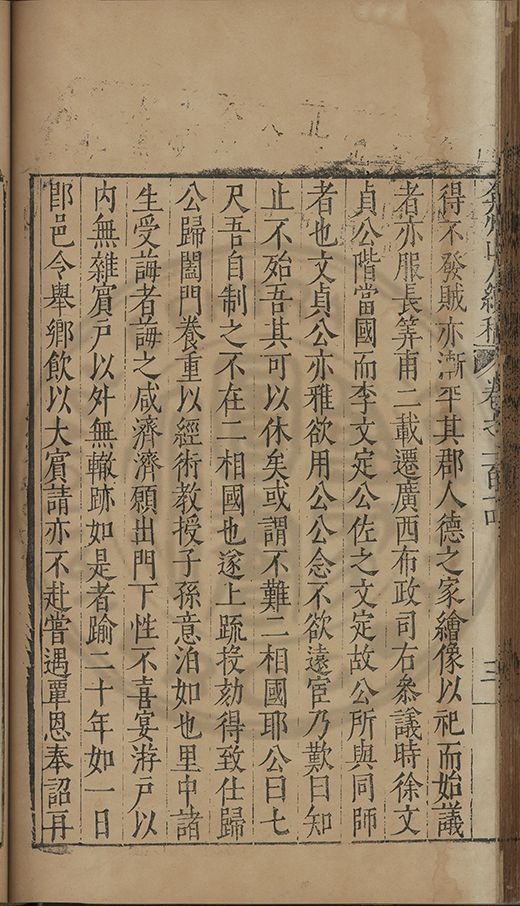 弇州山人續稿 卷之一百十 三
得不發賊亦漸平其郡人德之家繪像以祀而始議
者亦服長筭甫二載遷廣西布政司右叅議時徐文
貞公階當國而李文定公佐之文定故公所與同師
者也文貞公亦雅欲用公公念不欲遠宦乃歎曰知
止不殆吾其可以休矣或謂不難二相國耶公曰七
尺吾自制之不在二相國也遂上疏投劾得致仕歸
公歸闔門養重以經術教授子孫意泊如也里中諸
生受誨者誨之咸濟濟願出門下性不喜宴游戶以
內無雜賓戶以外無轍跡如是者踰二十年如一日
郎邑令舉鄉飲以大賓請亦不赴嘗遇覃恩奉詔再